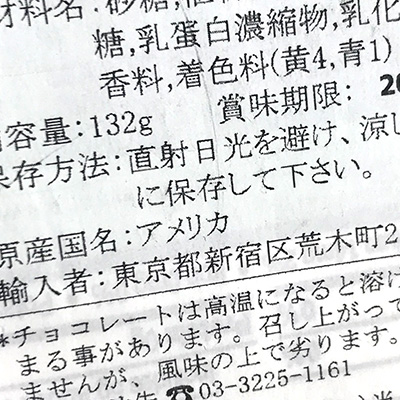 材料名:砂糖,植
糖,乳蛋白濃縮物,乳化
香料,着色料(黄4,青1)
賞味期限: 20
内容量:132g
保存方法:直射日光を避け、涼し
に保存して下さい。
原産国名:アメリカ
輸入者:東京都新宿区荒木町2
*チョコレートは高温になると溶け
まる事があります。召し上がって
ませんが、風味の上で劣ります。
☎03-3225-1161